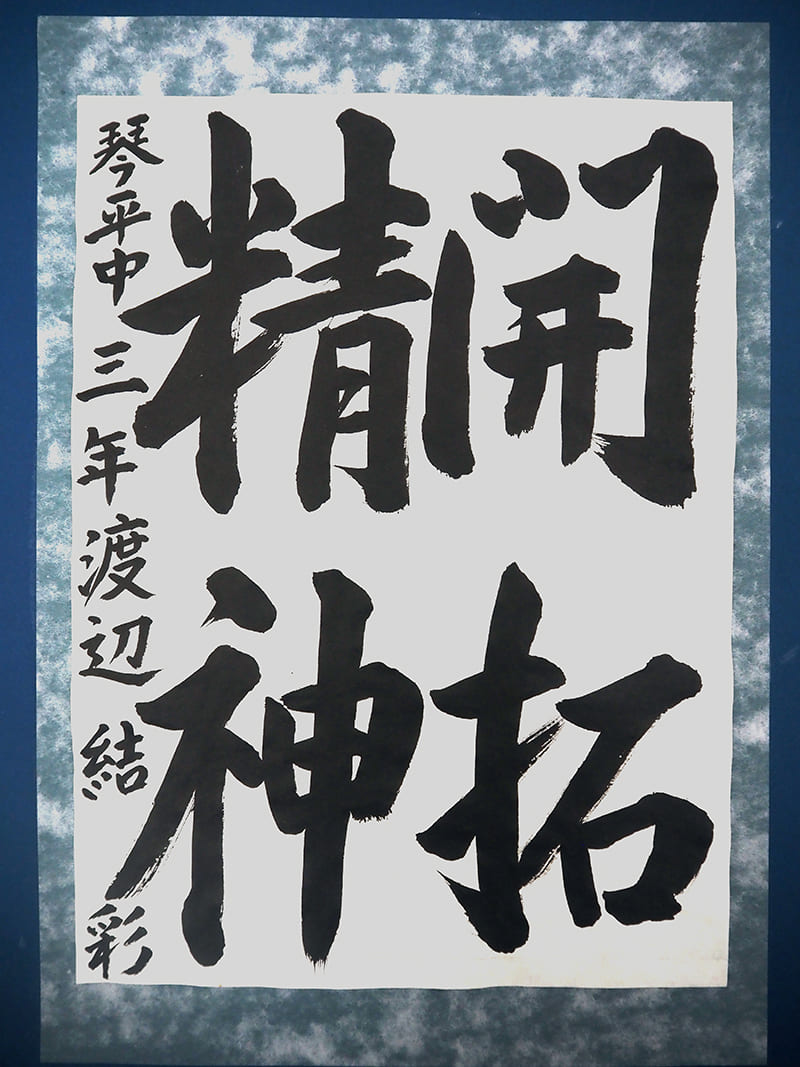 開拓
精神
琴平中 三年 渡辺 結彩